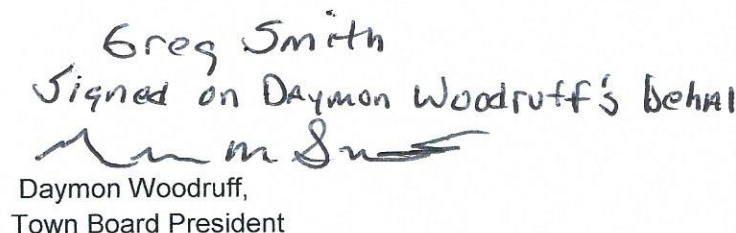 Greg Smith
Signed on Daymon Woodruff's behal
Daymon Woodruff,
Town Board President